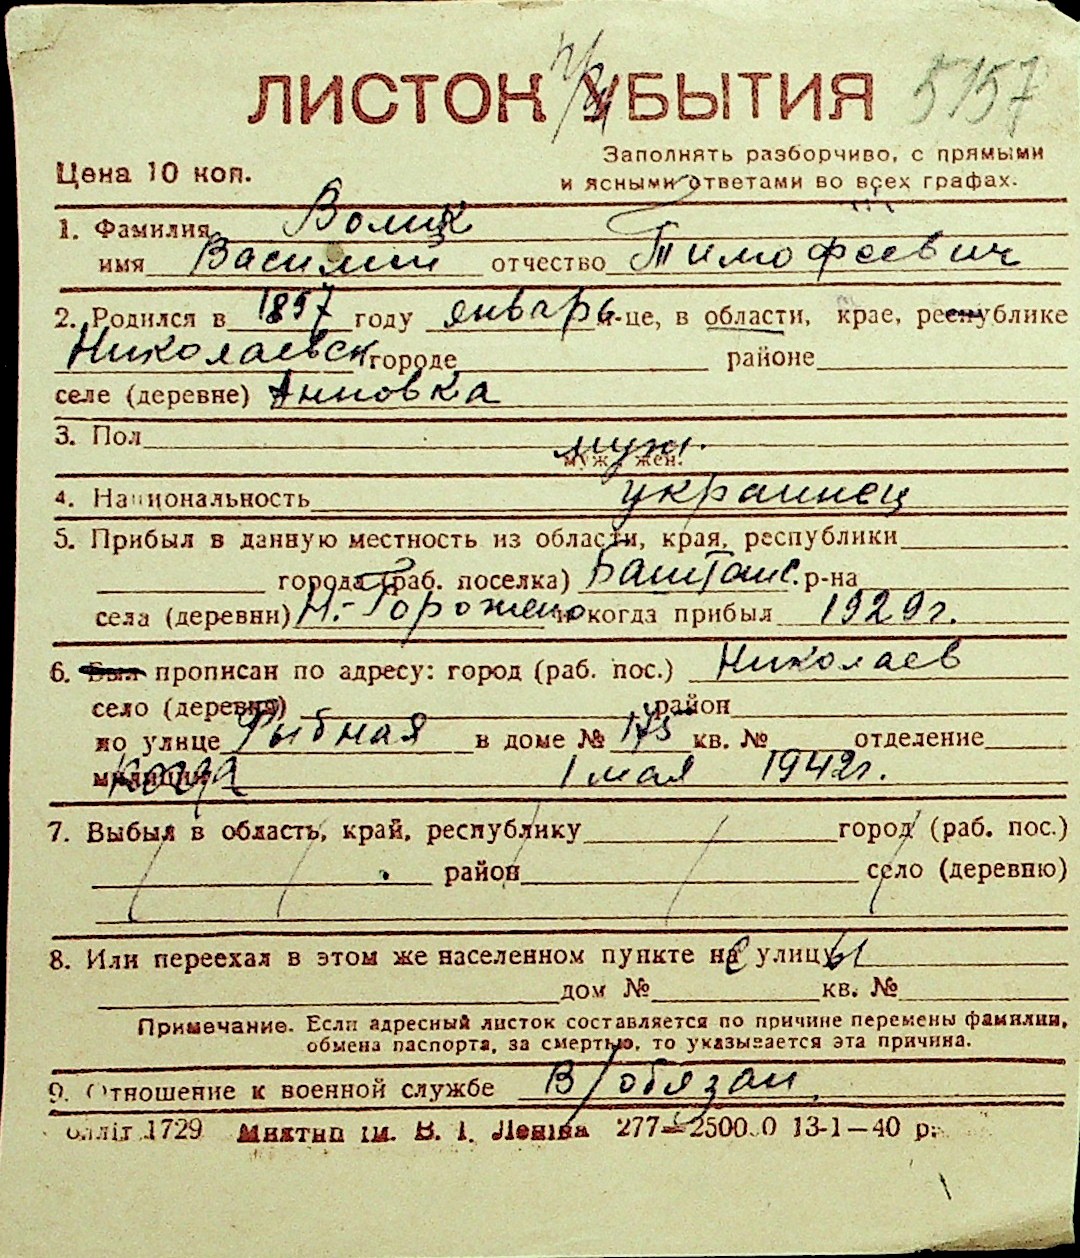 ЛИСТОК УБЫТИЯ 5157
Цена 10 коп.
Заполнять разборчиво, с прямыми
и ясными ответами во всех графах.
1. Фамилия Волик
имя Василий отчество Тимофеевич
2. Родился в 1897 году январь м-це, в области, крае, республике
Николаевск городе районе
селе (деревне) Анновка
3. Пол муж.
муж., жен.
4. Национальность украинец
5. Прибыл в данную местность из области, края, республики
города (раб. поселка) Баштанс. р-на
села (деревни) Н.-Горожено и когда прибыл 1929 г.
6. Был прописан по адресу: город (раб. пос.) Николаев
село (деревня) район
по улице Рыбная в доме № 175 кв. № отделение
милиции Когда 1 мая 1942 г.
7. Выбыл в область, край, республику город (раб. пос.)
район село (деревню)
8. Или переехал в этом же населенном пункте с улицы
дом № кв. №
Примечание. Если адресный листок составляется по причине перемены фамилии,
обмена паспорта, за смертью, то указывается эта причина.
9. Отношение к военной службе В/обязан
1729 ім. В. І. Леніна 277—2500.0 13-1—40 р.